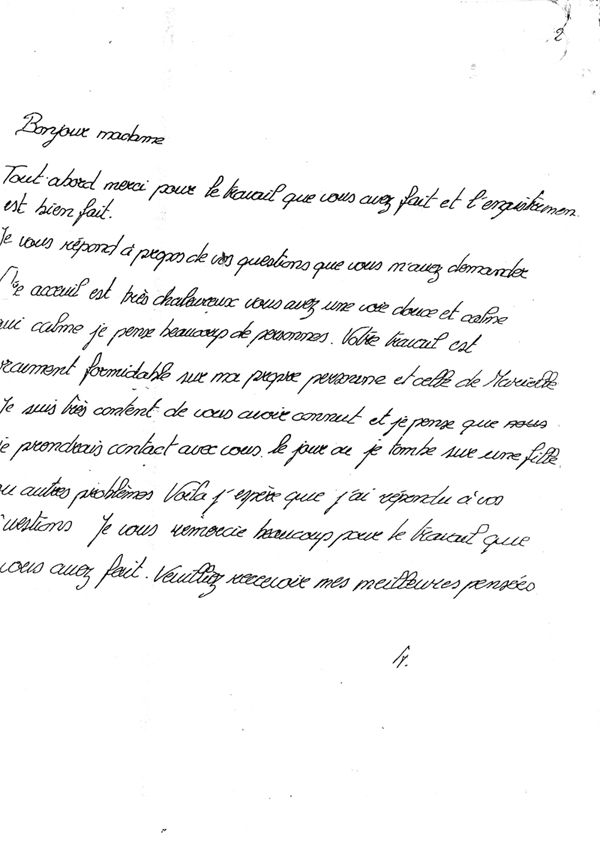 2
Bonjour madame
Tout abord merci pour le travail que vous avez fait et l'engistremen
est bien fait.
Je vous répond à propos de vos questions que vous m'avez demander
acceuil est très chaleureux vous avez une voie douce et calme
qui calme je pense beaucoup de personnes. Votre travail est
vraiment formidable sur ma propre personne et celle de Marielle
Je suis très content de vous avoir connut et je pense que nous
je prendrais contact avec vous le jour ou je tombe sur une fille
ou autres problèmes Voila j'espère que j'ai répondu à vos
questions Je vous remercie beaucoup pour le travail que
vous avez fait. Veuillez recevoir mes meilleures pensées